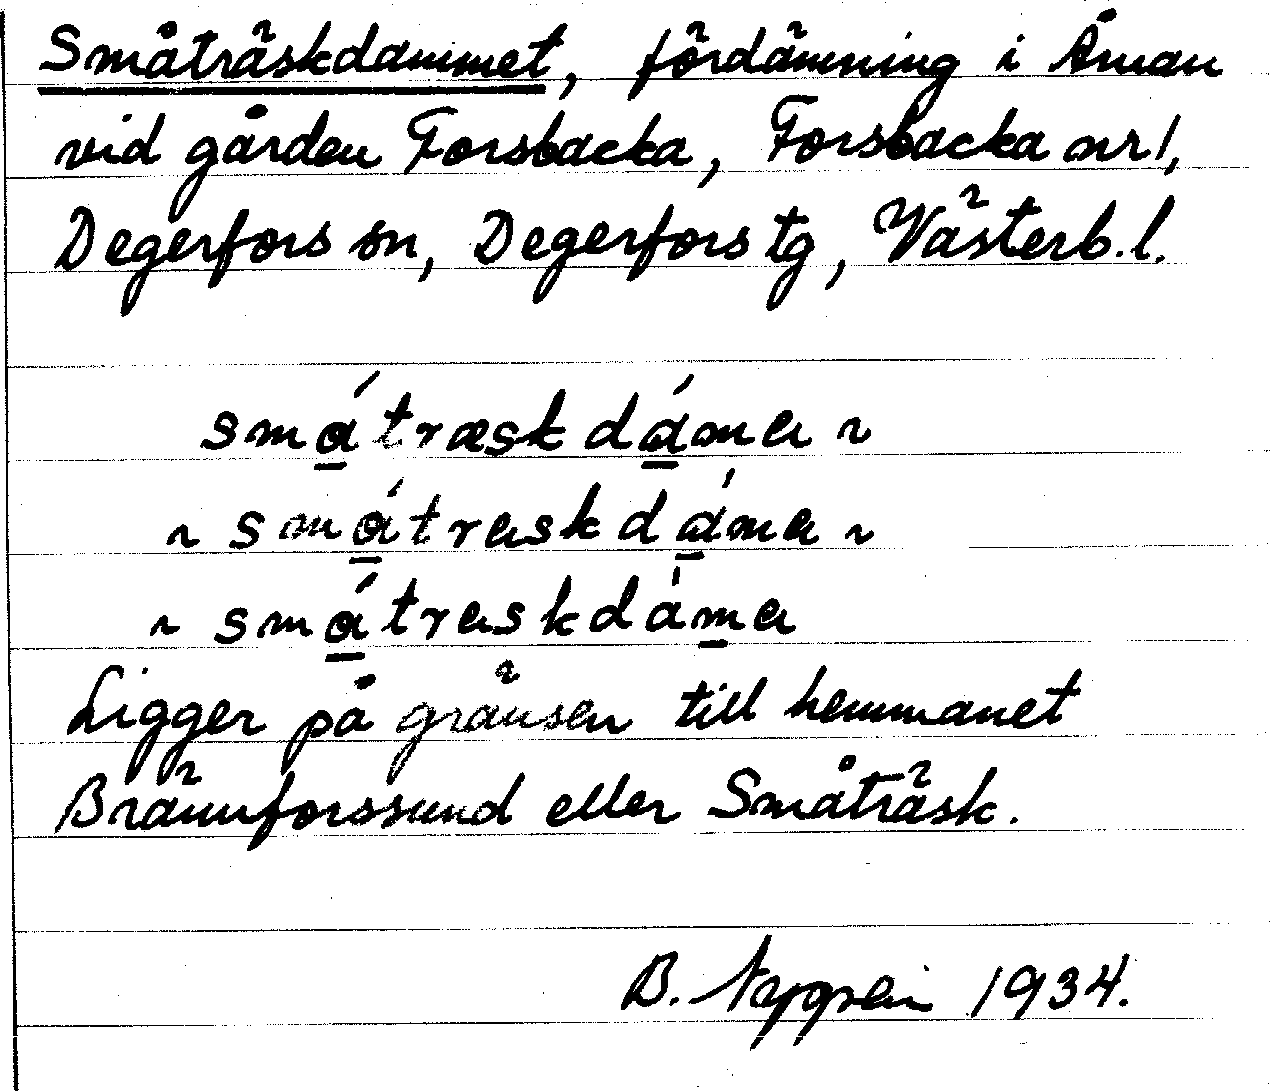 Småträskdammet, fördämning i Åman
vid gården Forsbacka, Forsbacka nr 1,
Degerfors sn, Degerfors tg, Västerb. l.
smǻtræskdáma ~
~ smǻtraskdáma ~
~ smǻtraskdáma
Ligger på gränsen till hemmanet
Brännforssund eller Småträsk.
B. Nygren 1934.